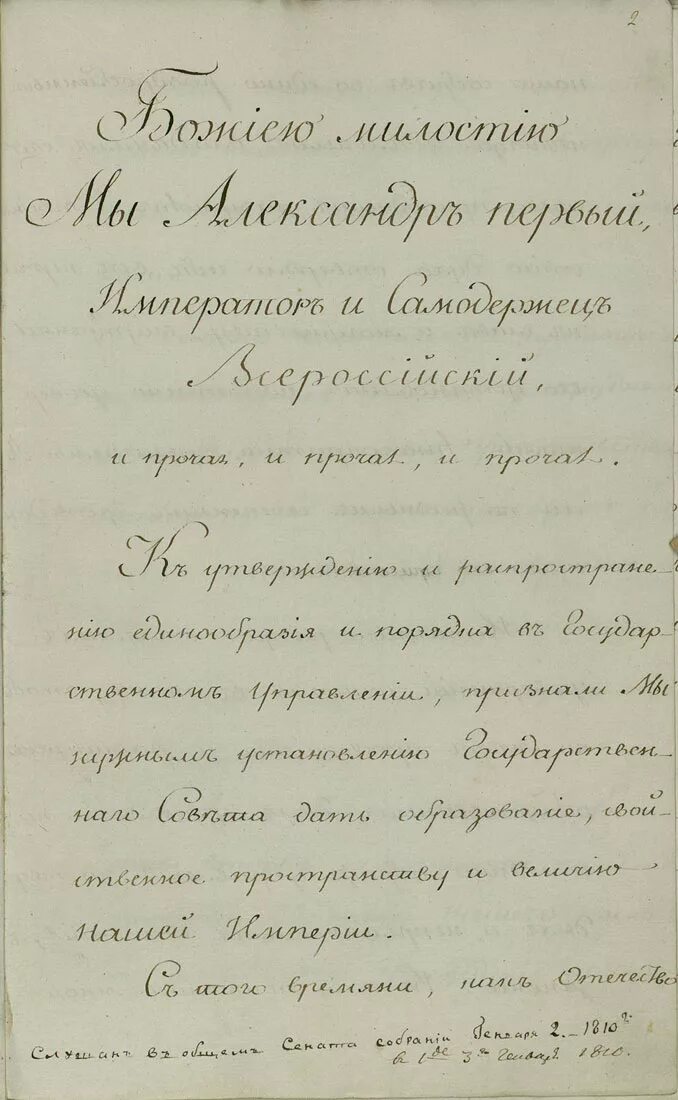 2
Божіею милостію
Мы Александръ первый,
Императоръ и Самодержецъ
Всероссійскій,
и прочая, и прочая, и прочая.
Къ утвержденію и распростране-
нію единообразія и порядка въ Государ-
ственномъ Управленіи, признали Мы
нужнымъ установленію Государствен-
наго Совѣта дать образованіе, свой-
ственное пространству и величію
нашей Имперіи.
Съ того времяни, какъ Отечество
Слушанъ въ общемъ Сената собраніи Генваря 2. - 1810г.
1де 3го Генваря 1810.